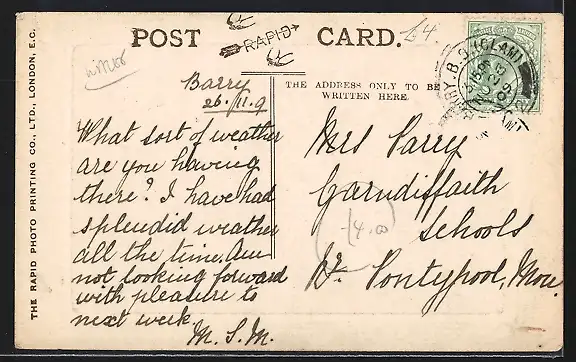 POST CARD.
RAPID
£4
THE ADDRESS ONLY TO BE
WRITTEN HERE.
THE RAPID PHOTO PRINTING CO., LTD., LONDON, E.C.
Barry
26./11.9
What sort of weather
are you having
there? I have had
splendid weather
all the time. Am
not looking forward
with pleasure to
next week.
M. S. M.
Mrs Parry
Garndiffaith
Schools
Nr. Pontypool, Mon.
£4.00
BARRY